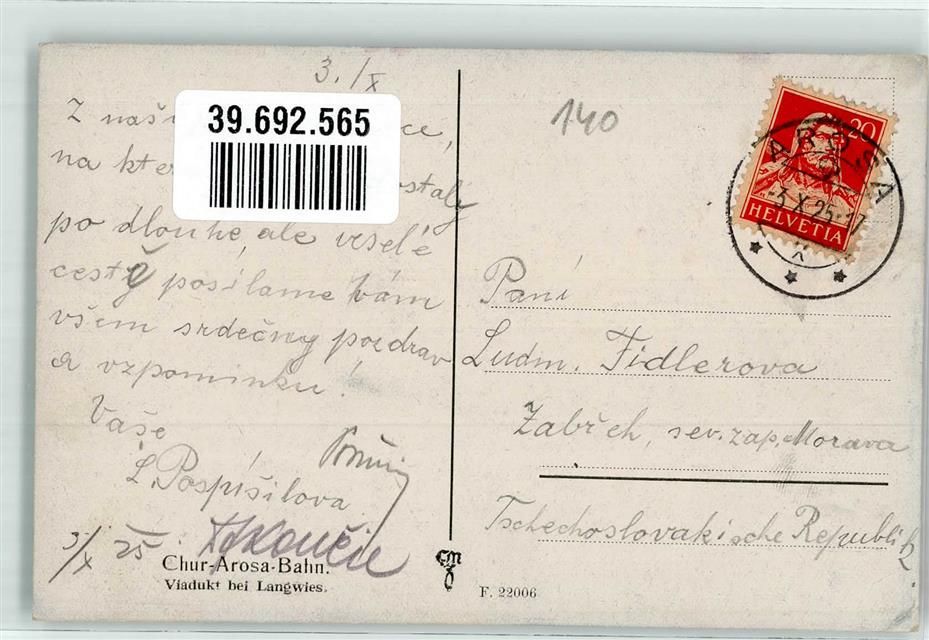 3./X
39.692.565
Z naší ce,
na kte ostaly
po dlouhé, ale veselé
cestě posílame Vám
všem srdečny pozdrav
a vzpominku!
Vaše
L. Pospíšilova
3/X 25
Chur-Arosa-Bahn.
Viadukt bei Langwies.
140
20
HELVETIA
AROSA
-3.X.25.-17
Paní
Ludm. Fidlerova
Zabřeh, sev. zap. Morava
Tschechoslovakische Republik
F. 22006